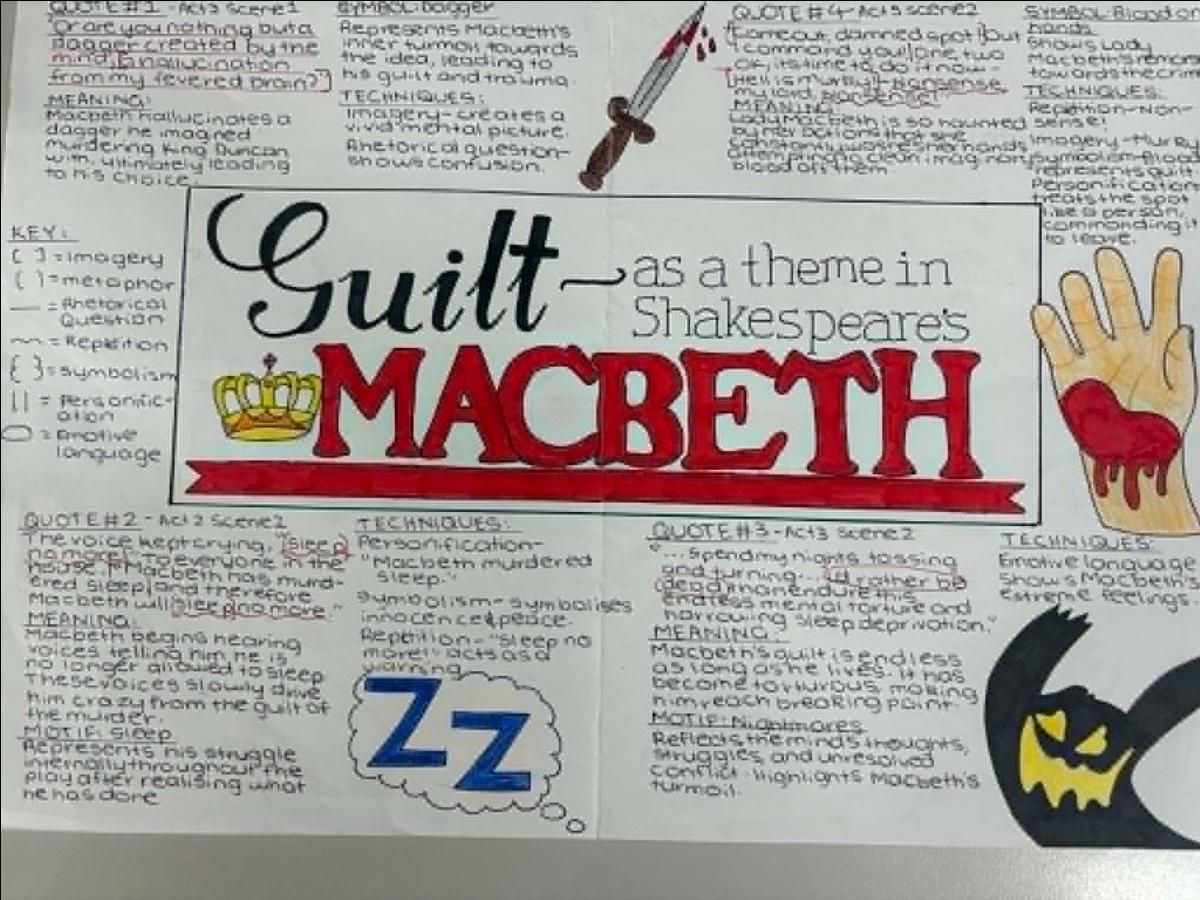 QUOTE #1 - Act 3 Scene 1
Or are you nothing but a
dagger created by the
mind, a hallucination
from my fevered brain?"
MEANING:
Macbeth hallucinates a
dagger he imagined
murdering King Duncan
with, ultimately leading
to his choice.
SYMBOL: Dagger
Represents Macbeth's
inner turmoil towards
the idea, leading to
his guilt and trauma.
TECHNIQUES:
Imagery - creates a
vivid mental picture.
Rhetorical question -
shows confusion.
QUOTE #4 - Act 5 scene 2
"Come out, damned spot! Out
I command you! One, two
OK, its time to do it now -
Hell is murky! - Nonsense
my lord, nonsense!
MEANING:
Lady Macbeth is so haunted
by her actions that she
constantly washes her hands
attempting to clean imaginary
blood off them
SYMBOL: Blood on
hands
Shows Lady
Macbeth's remorse
towards the crim
TECHNIQUES:
Repetition - Non-
sense!
Imagery - Murky
Symbolism - Blood
represents guilt
Personification
treats the spot
like a person,
commanding it
to leave.
KEY:
[ ] = Imagery
( ) = metaphor
— = Rhetorical
Question
~ = Repetition
{ } = symbolism
|| = Personific-
ation
= Emotive
language
Guilt as a theme in
Shakespeare's
MACBETH
QUOTE #2 - Act 2 Scene 2
The voice kept crying, "Sleep
no more!" To everyone in the
house. "Macbeth has murd-
ered sleep, and therefore
Macbeth will sleep no more."
MEANING:
Macbeth begins hearing
voices telling him he is
no longer allowed to sleep
These voices slowly drive
him crazy from the guilt of
the murder.
MOTIF: Sleep
Represents his struggle
internally throughout the
play after realising what
he has done
TECHNIQUES:
Personification -
"Macbeth murdered
sleep."
Symbolism - symbolises
innocence & peace.
Repetition - "Sleep no
more!" acts as a
warning
ZZ
QUOTE #3 - Act 3 Scene 2
"...Spend my nights tossing
and turning... I'd rather be
dead than endure this
endless mental torture and
harrowing sleep deprivation."
MEANING:
Macbeth's guilt is endless
as long as he lives. It has
become torturous, making
him reach breaking point.
MOTIF: Nightmares
Reflects the minds thoughts,
struggles, and unresolved
conflict. Highlights Macbeth's
turmoil.
TECHNIQUES:
Emotive language
shows Macbeth's
extreme feelings.